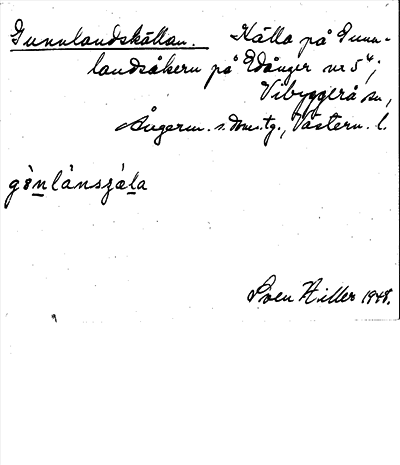 Gunnlandskällan. Källa på Gunn-
landsåkern på Edånger nr 5⁴;
Vibyggerå sn,
Ångerm. s. dms. tg., Västern. l.
gònlánsʒäla
Sven Hiller 1948.